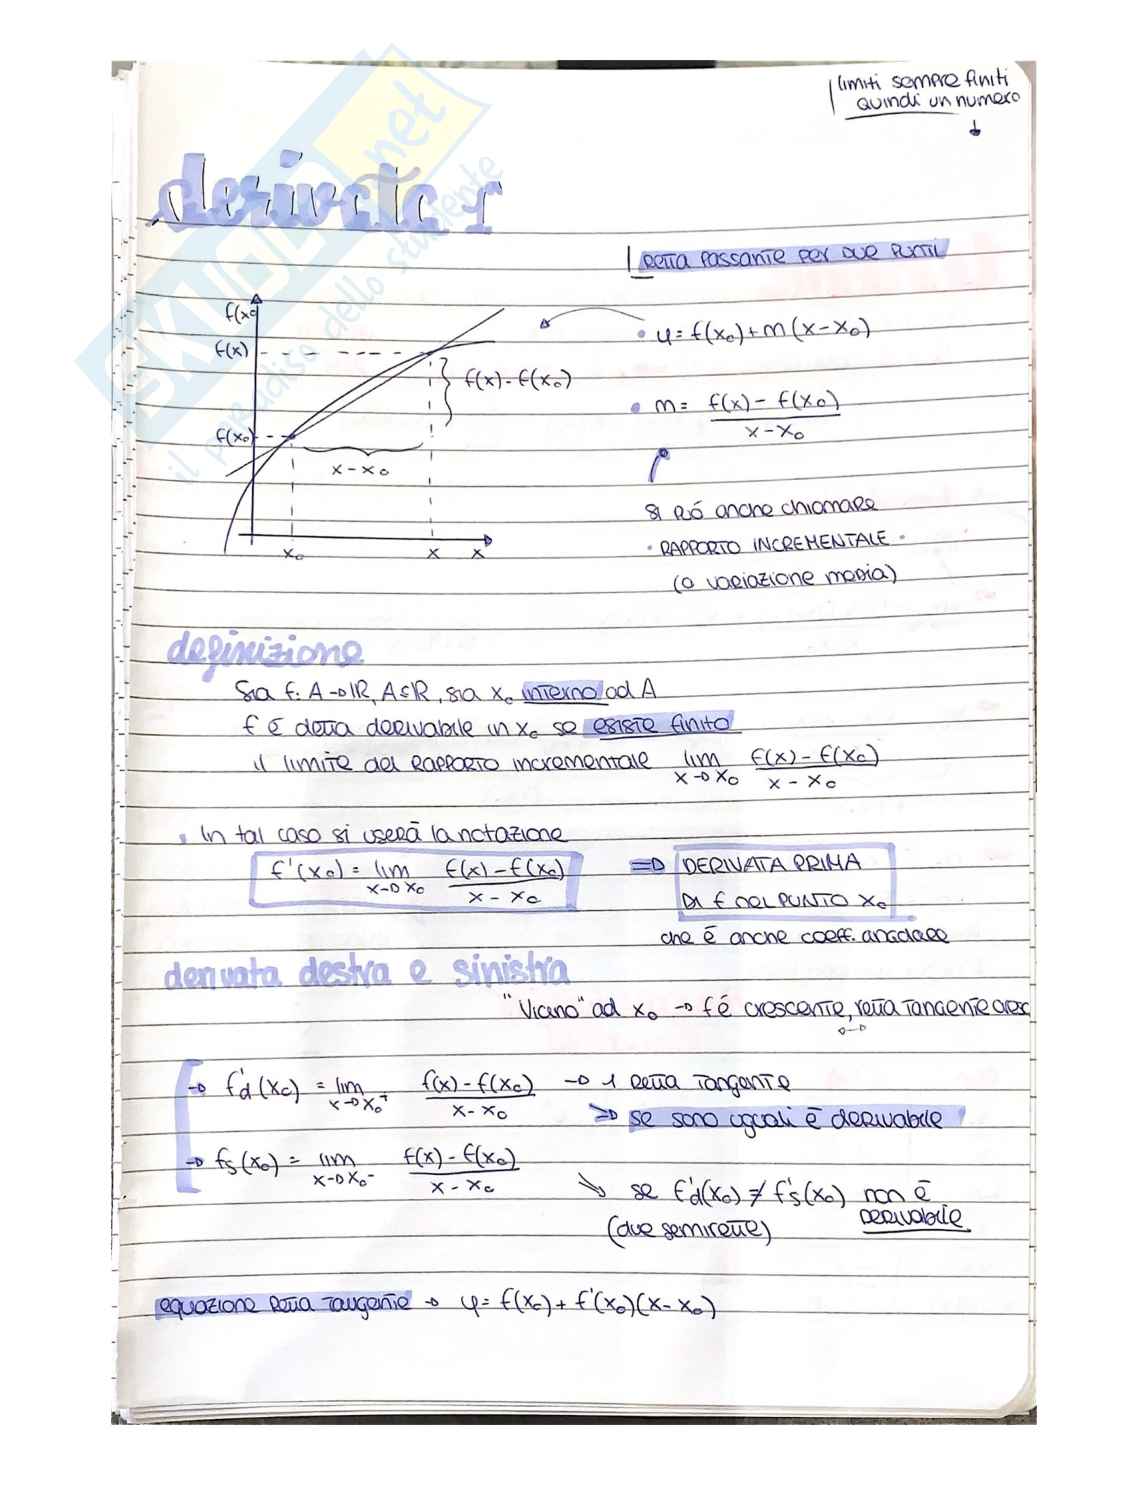 limiti sempre finiti
quindi un numero
derivata 1
SKUOLA.net
il paradiso dello studente
retta passante per due punti
f(x)
f(x)
f(x₀)
f(x) - f(x₀)
x - x₀
x₀ x x
• y = f(x₀) + m(x - x₀)
• m = f(x) - f(x₀) / x - x₀
si può anche chiamare
• RAPPORTO INCREMENTALE •
(o variazione media)
definizione
Sia f: A → ℝ, A ⊆ ℝ, sia x₀ interno ad A
f è detta derivabile in x₀ se esiste finito
il limite del rapporto incrementale lim x→x₀ f(x) - f(x₀) / x - x₀
• In tal caso si userà la notazione
f'(x₀) = lim x→x₀ f(x) - f(x₀) / x - x₀ ⇒ DERIVATA PRIMA
DI f NEL PUNTO x₀
che è anche coeff. angolare
derivata destra e sinistra
"Vicino" ad x₀ → f é crescente, retta tangente cresc
→ f'd(x₀) = lim x→x₀⁺ f(x) - f(x₀) / x - x₀ → 1 retta tangente
⇒ se sono uguali è derivabile
→ f's(x₀) = lim x→x₀⁻ f(x) - f(x₀) / x - x₀
↘ se f'd(x₀) ≠ f's(x₀) non è
derivabile
(due semirette)
equazione retta tangente → y = f(x₀) + f'(x₀)(x - x₀)